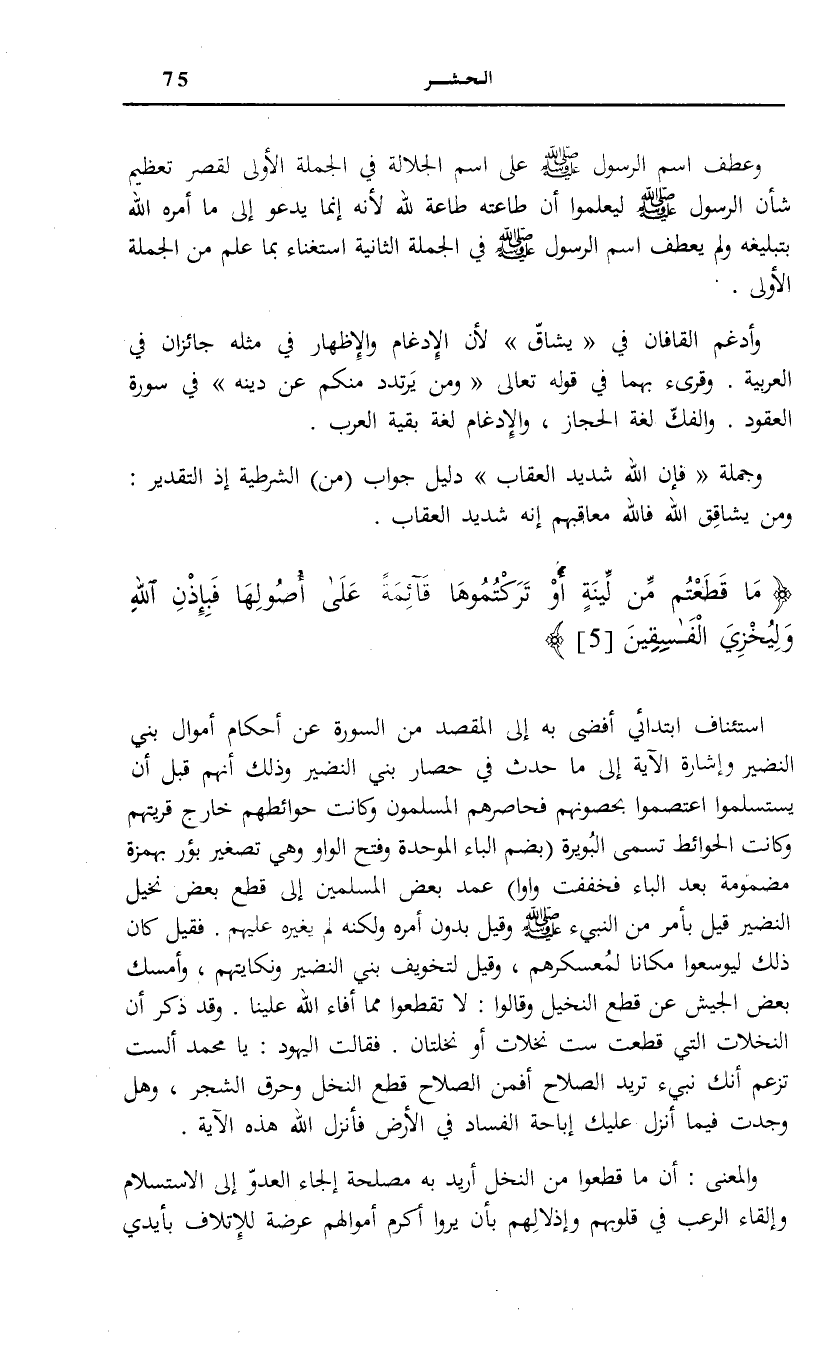 الحشر 75
وعطف اسم الرسول ﷺ على اسم الجلالة في الجملة الأولى لقصر تعظيم
شأن الرسول ﷺ ليعلموا أن طاعته طاعة لله لأنه إنما يدعو إلى ما أمره الله
بتبليغه ولم يعطف اسم الرسول ﷺ في الجملة الثانية استغناء بما علم من الجملة
الأولى .
وأدغم القافان في « يشاقّ » لأن الإدغام والإظهار في مثله جائزان في
العربية . وقرىء بهما في قوله تعالى « ومن يَرتدد منكم عن دينه » في سورة
العقود . والفكّ لغة الحجاز ، والإدغام لغة بقية العرب .
وجملة « فإن الله شديد العقاب » دليل جواب (من) الشرطية إذ التقدير :
ومن يشاقِق الله فالله معاقبهم إنه شديد العقاب .
﴿ مَا قَطَعْتُم مِّن لِّينَةٍ أَوْ تَرَكْتُمُوهَا قَآئِمَةً عَلَىٰ أُصُولِهَا فَبِإِذْنِ ٱللَّهِ
وَلِيُخْزِيَ الْفَٰسِقِينَ [5] ﴾
استئناف ابتدائي أفضى به إلى المقصد من السورة عن أحكام أموال بني
النضير وإشارة الآية إلى ما حدث في حصار بني النضير وذلك أنهم قبل أن
يستسلموا اعتصموا بحصونهم فحاصرهم المسلمون وكانت حوائطهم خارج قريتهم
وكانت الحوائط تسمى البُويرة (بضم الباء الموحدة وفتح الواو وهي تصغير بؤر بهمزة
مضمومة بعد الباء فخففت واوا) عمد بعض المسلمين إلى قطع بعض نخيل
النضير قيل بأمر من النبيء ﷺ وقيل بدون أمره ولكنه لم يغيره عليهم . فقيل كان
ذلك ليوسعوا مكانا لمُعسكرهم ، وقيل لتخويف بني النضير ونكايتهم ، وأمسك
بعض الجيش عن قطع النخيل وقالوا : لا تقطعوا مما أفاء الله علينا . وقد ذكر أن
النخلات التي قطعت ست نخلات أو نخلتان . فقالت اليهود : يا محمد ألست
تزعم أنك نبيء تريد الصلاح أفمن الصلاح قطع النخل وحرق الشجر ، وهل
وجدت فيما أنزل عليك إباحة الفساد في الأرض فأنزل الله هذه الآية .
والمعنى : أن ما قطعوا من النخل أريد به مصلحة إلجاء العدوّ إلى الاستسلام
وإلقاء الرعب في قلوبهم وإذلالِهم بأن يروا أكرم أموالهم عرضة للإتلاف بأيدي